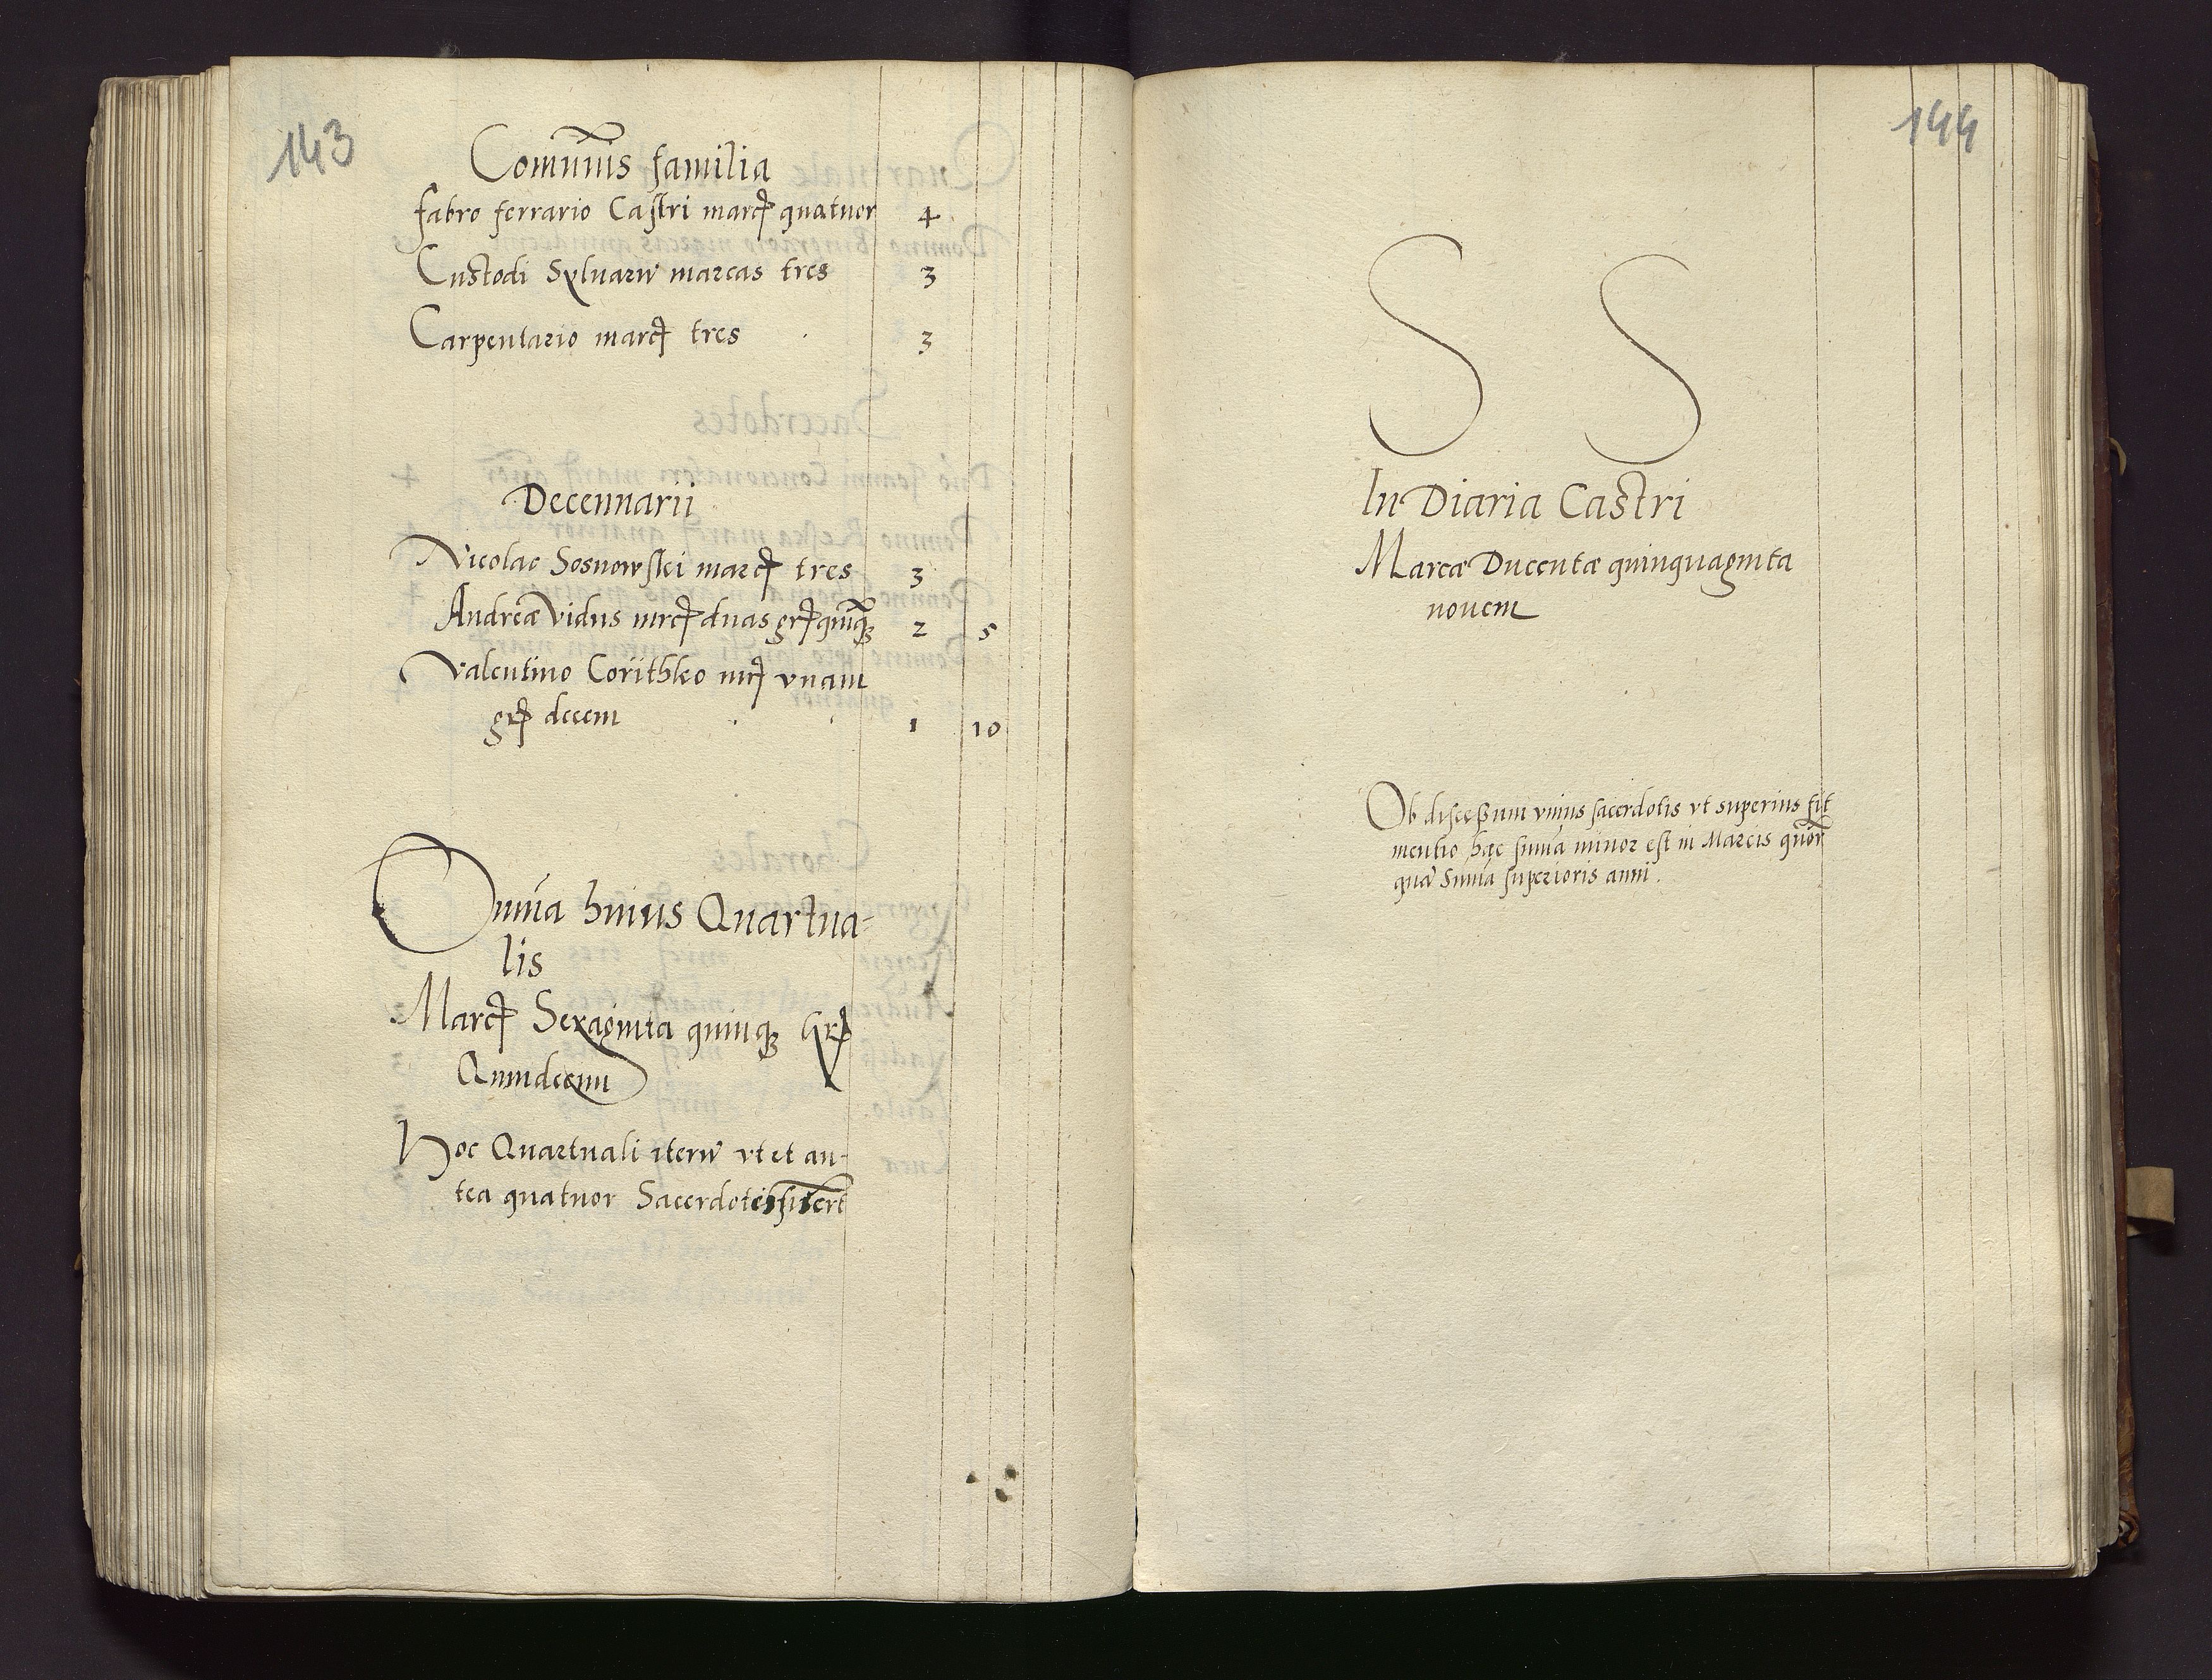 143
Comūnis familia
fabro ferrario Castri marcꝭ quatuor 4
Custodi Syluarū marcas tres 3
Carpentario marcꝭ tres 3
Decennarii
Nicolao Sosnowskei marcꝭ tres 3
Andreæ Vidus mrcꝭ duas grꝭ quīqꝫ 2 5
Valentino Coriithko mrꝭ vnam
grꝭ decem 1 10
Sum̄a huius Quartua-
lis
Marcꝭ Sexaginta quinqꝫ Grꝭ
Quindecim
Hoc Quartuali iterū vt et an-
tea quatuor Sacerdotes
144
S S
In Diaria Castri
Marcæ Ducentæ quinquaginta
nouem
Ob discessum vnius sacerdotis vt superius fit
mentio hæc sum̄a minor est in Marcis quōr
quā Sum̄a superioris anni.